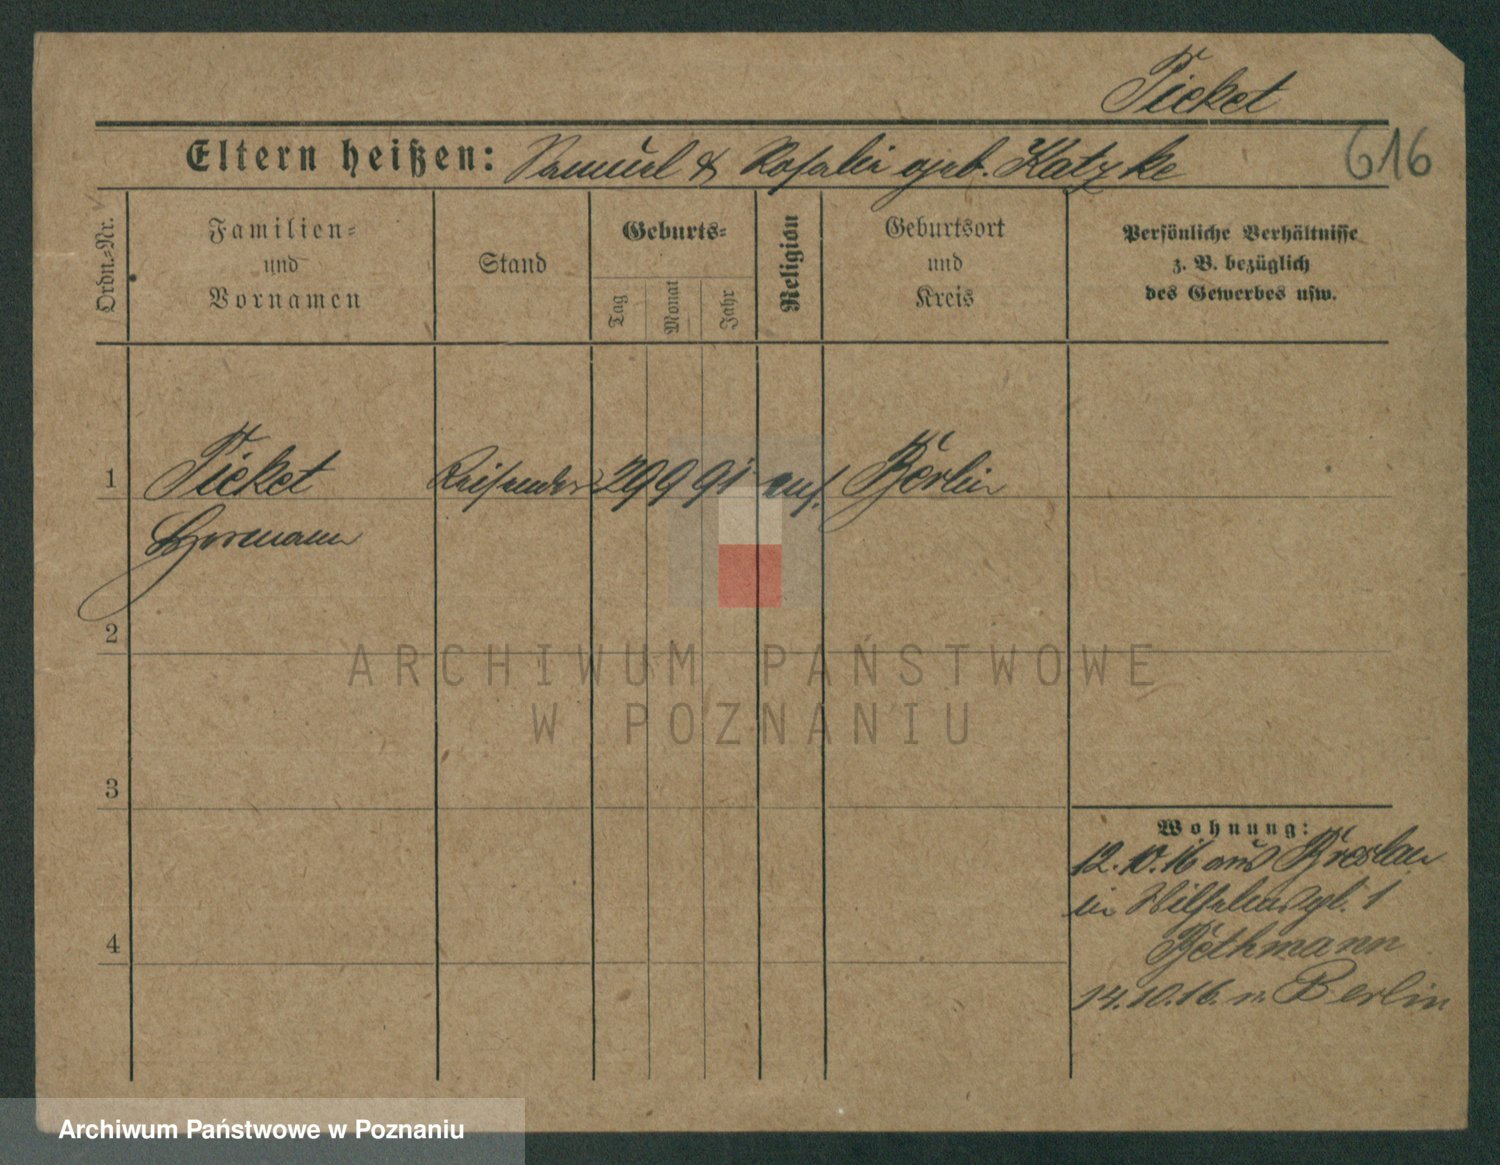 Picket
616
Eltern heißen: Samuel & Rosalie geb. Katzke
Ordn.-Nr.
Familien- und Vornamen
Stand
Geburts-
Tag
Monat
Jahr
Religion
Geburtsort und Kreis
Persönliche Verhältnisse
z. B. bezüglich
des Gewerbes usw.
1 Picket Reisender 29 9 91 Berlin
Hermann
2
3
4
Wohnung:
12.10.16 aus Breslau
in Wilhelmspl. 1
Bethmann
14.10.16. n. Berlin
ARCHIWUM PAŃSTWOWE
W POZNANIU
Archiwum Państwowe w Poznaniu